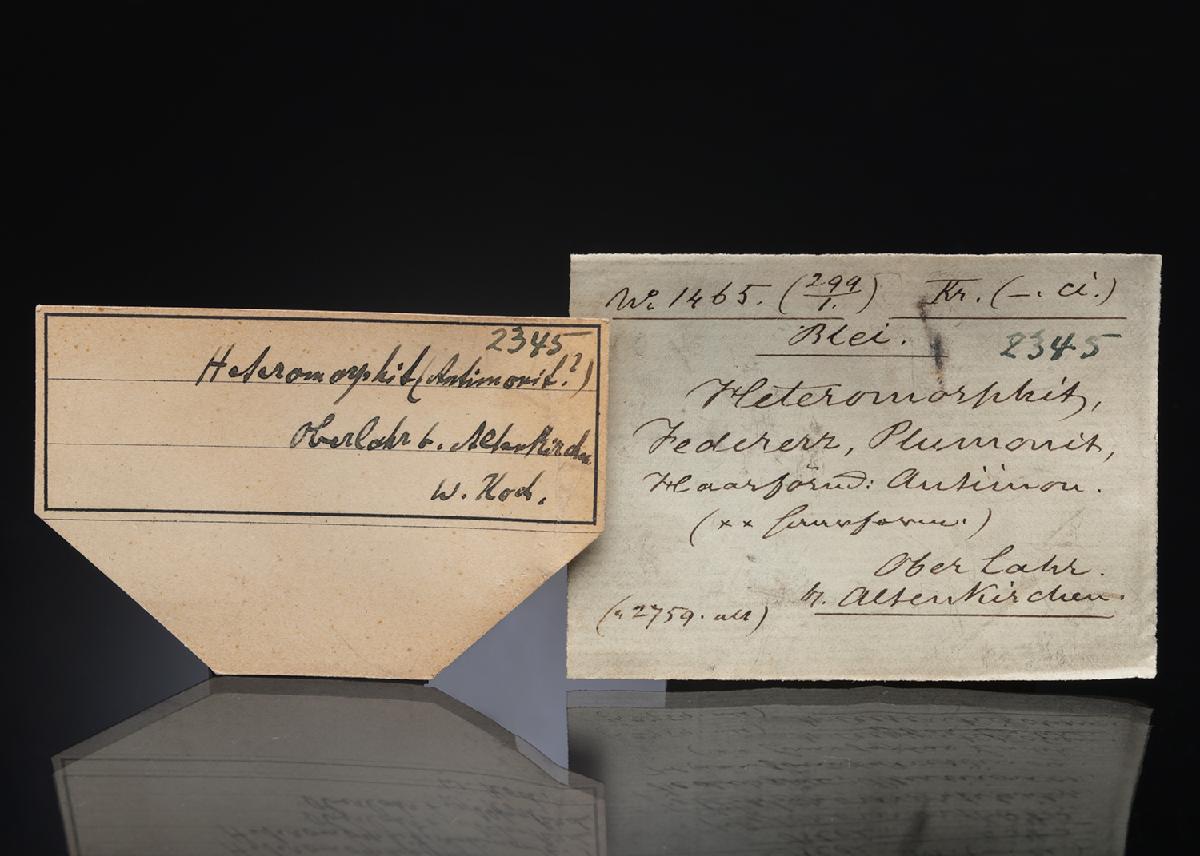 2345
Heteromorphit (Antimonit.?)
Oberlahr b. Altenkirchen
W. Koch.
Nr 1465. (299/1.) Kr. (–. ci.)
Blei.
2345
Heteromorphit,
Federerz, Plumonit,
Haarförm: Antimon.
(×× haarform.)
Oberlahr.
b. Altenkirchen.
2759. alt)